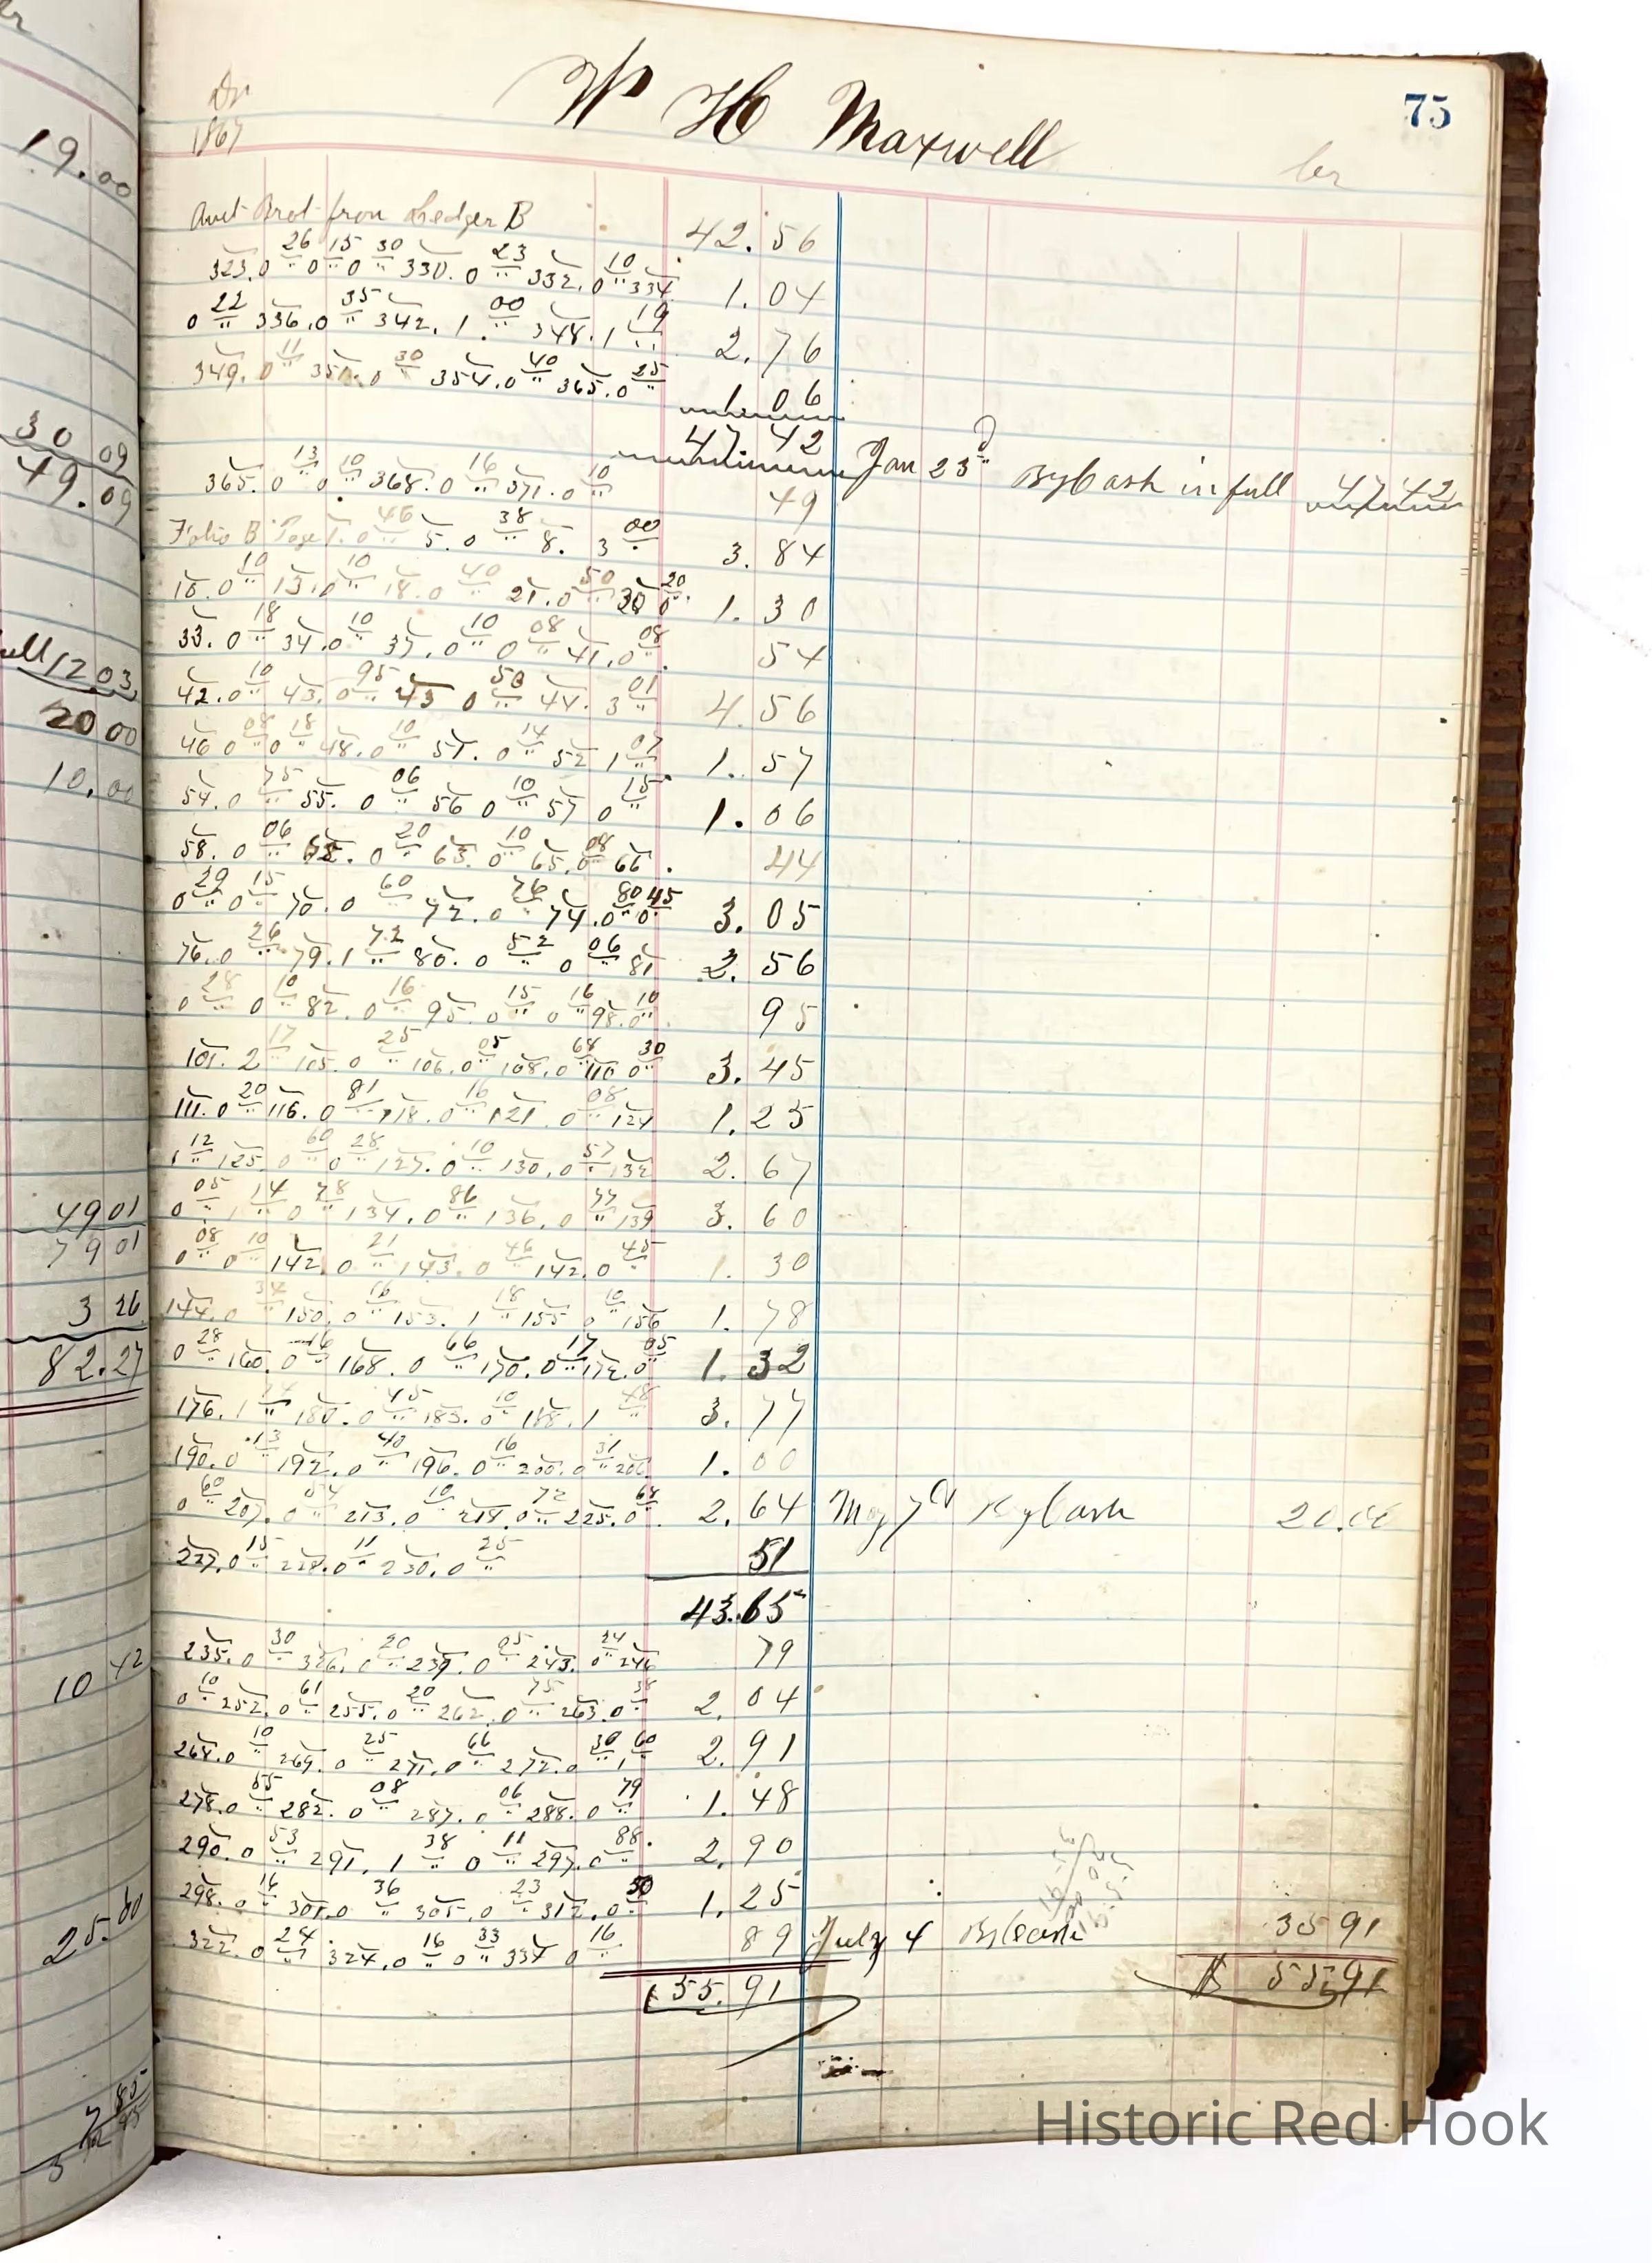 19.00
30 09
49.09
1203
20 00
10.00
49 01
79 01
3 26
82.27
10 42
25.00
75
W H Maxwell
Dr
1867
Cr
Amt Brot from Ledger B 42.56
323.0 26 0 15 0 30 330.0 23 332.0 10 334 1.04
0 22 336.0 35 342.1.00 348.1 19 2.76
349.0 11 351.0 30 354.0 40 365.0 25 1 06
47.42 Jan 23d By Cash in full 47 42
365.0 13 0 10 368.0 16 371.0 10 49
Folio B Page 1.0 46 5.0 38 8. 3 00 3.84
10 13.0 10 18.0 40 21.0 50 30 0 20 1.30
33.0 18 34.0 10 37.0 10 0 08 41.0 08 54
42.0 10 43.0 95 43 0 50 44. 3 01 4.56
46 0 08 0 18 48.0 10 51.0 14 52 1 07 1.57
54.0 75 55.0 06 56 0 10 57 0 15 1.06
58.0 06 62.0 20 63.0 10 65.0 08 66. 44
0 29 0 15 70.0 60 72.0 76 74.0 80 0 45 3.05
76.0 26 79.1 72 80.0 52 0 06 81 2.56
0 28 0 10 82.0 16 95.0 15 0 16 98.0 10 95
101.2 17 105.0 25 106.0 05 108.0 68 110 0 30 3.45
111.0 20 116.0 81 118.0 16 121.0 08 124 1.25
1 12 125.0 60 0 28 127.0 10 130.0 57 132 2.67
0 05 1 14 0 78 134.0 86 136.0 77 139 3.60
0 08 0 10 142.0 21 143.0 46 142.0 45 1.30
144.0 34 150.0 16 153.1 18 155 0 10 156 1.78
0 28 160.0 16 168.0 66 170.0 17 172.0 05 1.32
176.1 74 180.0 45 183.0 10 188.1 48 3.77
190.0 13 192.0 40 196.0 16 200.0 31 206 1.00
0 60 207.0 54 213.0 10 218.0 72 225.0 68 2.64 May 7th By Cash 20.00
227.0 15 228.0 11 230.0 25 51
43.65
235.0 30 326.0 20 239.0 05 243.0 24 246 79
0 10 252.0 61 255.0 20 262.0 75 263.0 38 2.04
268.0 10 269.0 25 271.0 66 272.0 30 1 60 2.91
278.0 55 282.0 08 287.0 06 288.0 79 1.48
290.0 53 291.1 38 0 11 297.0 88 2.90
298.0 16 301.0 36 305.0 23 312.0 50 1.25
322.0 24 324.0 16 0 33 334 0 16 89 July 4 By Cash 35 91
55.91 $ 55 91
Historic Red Hook